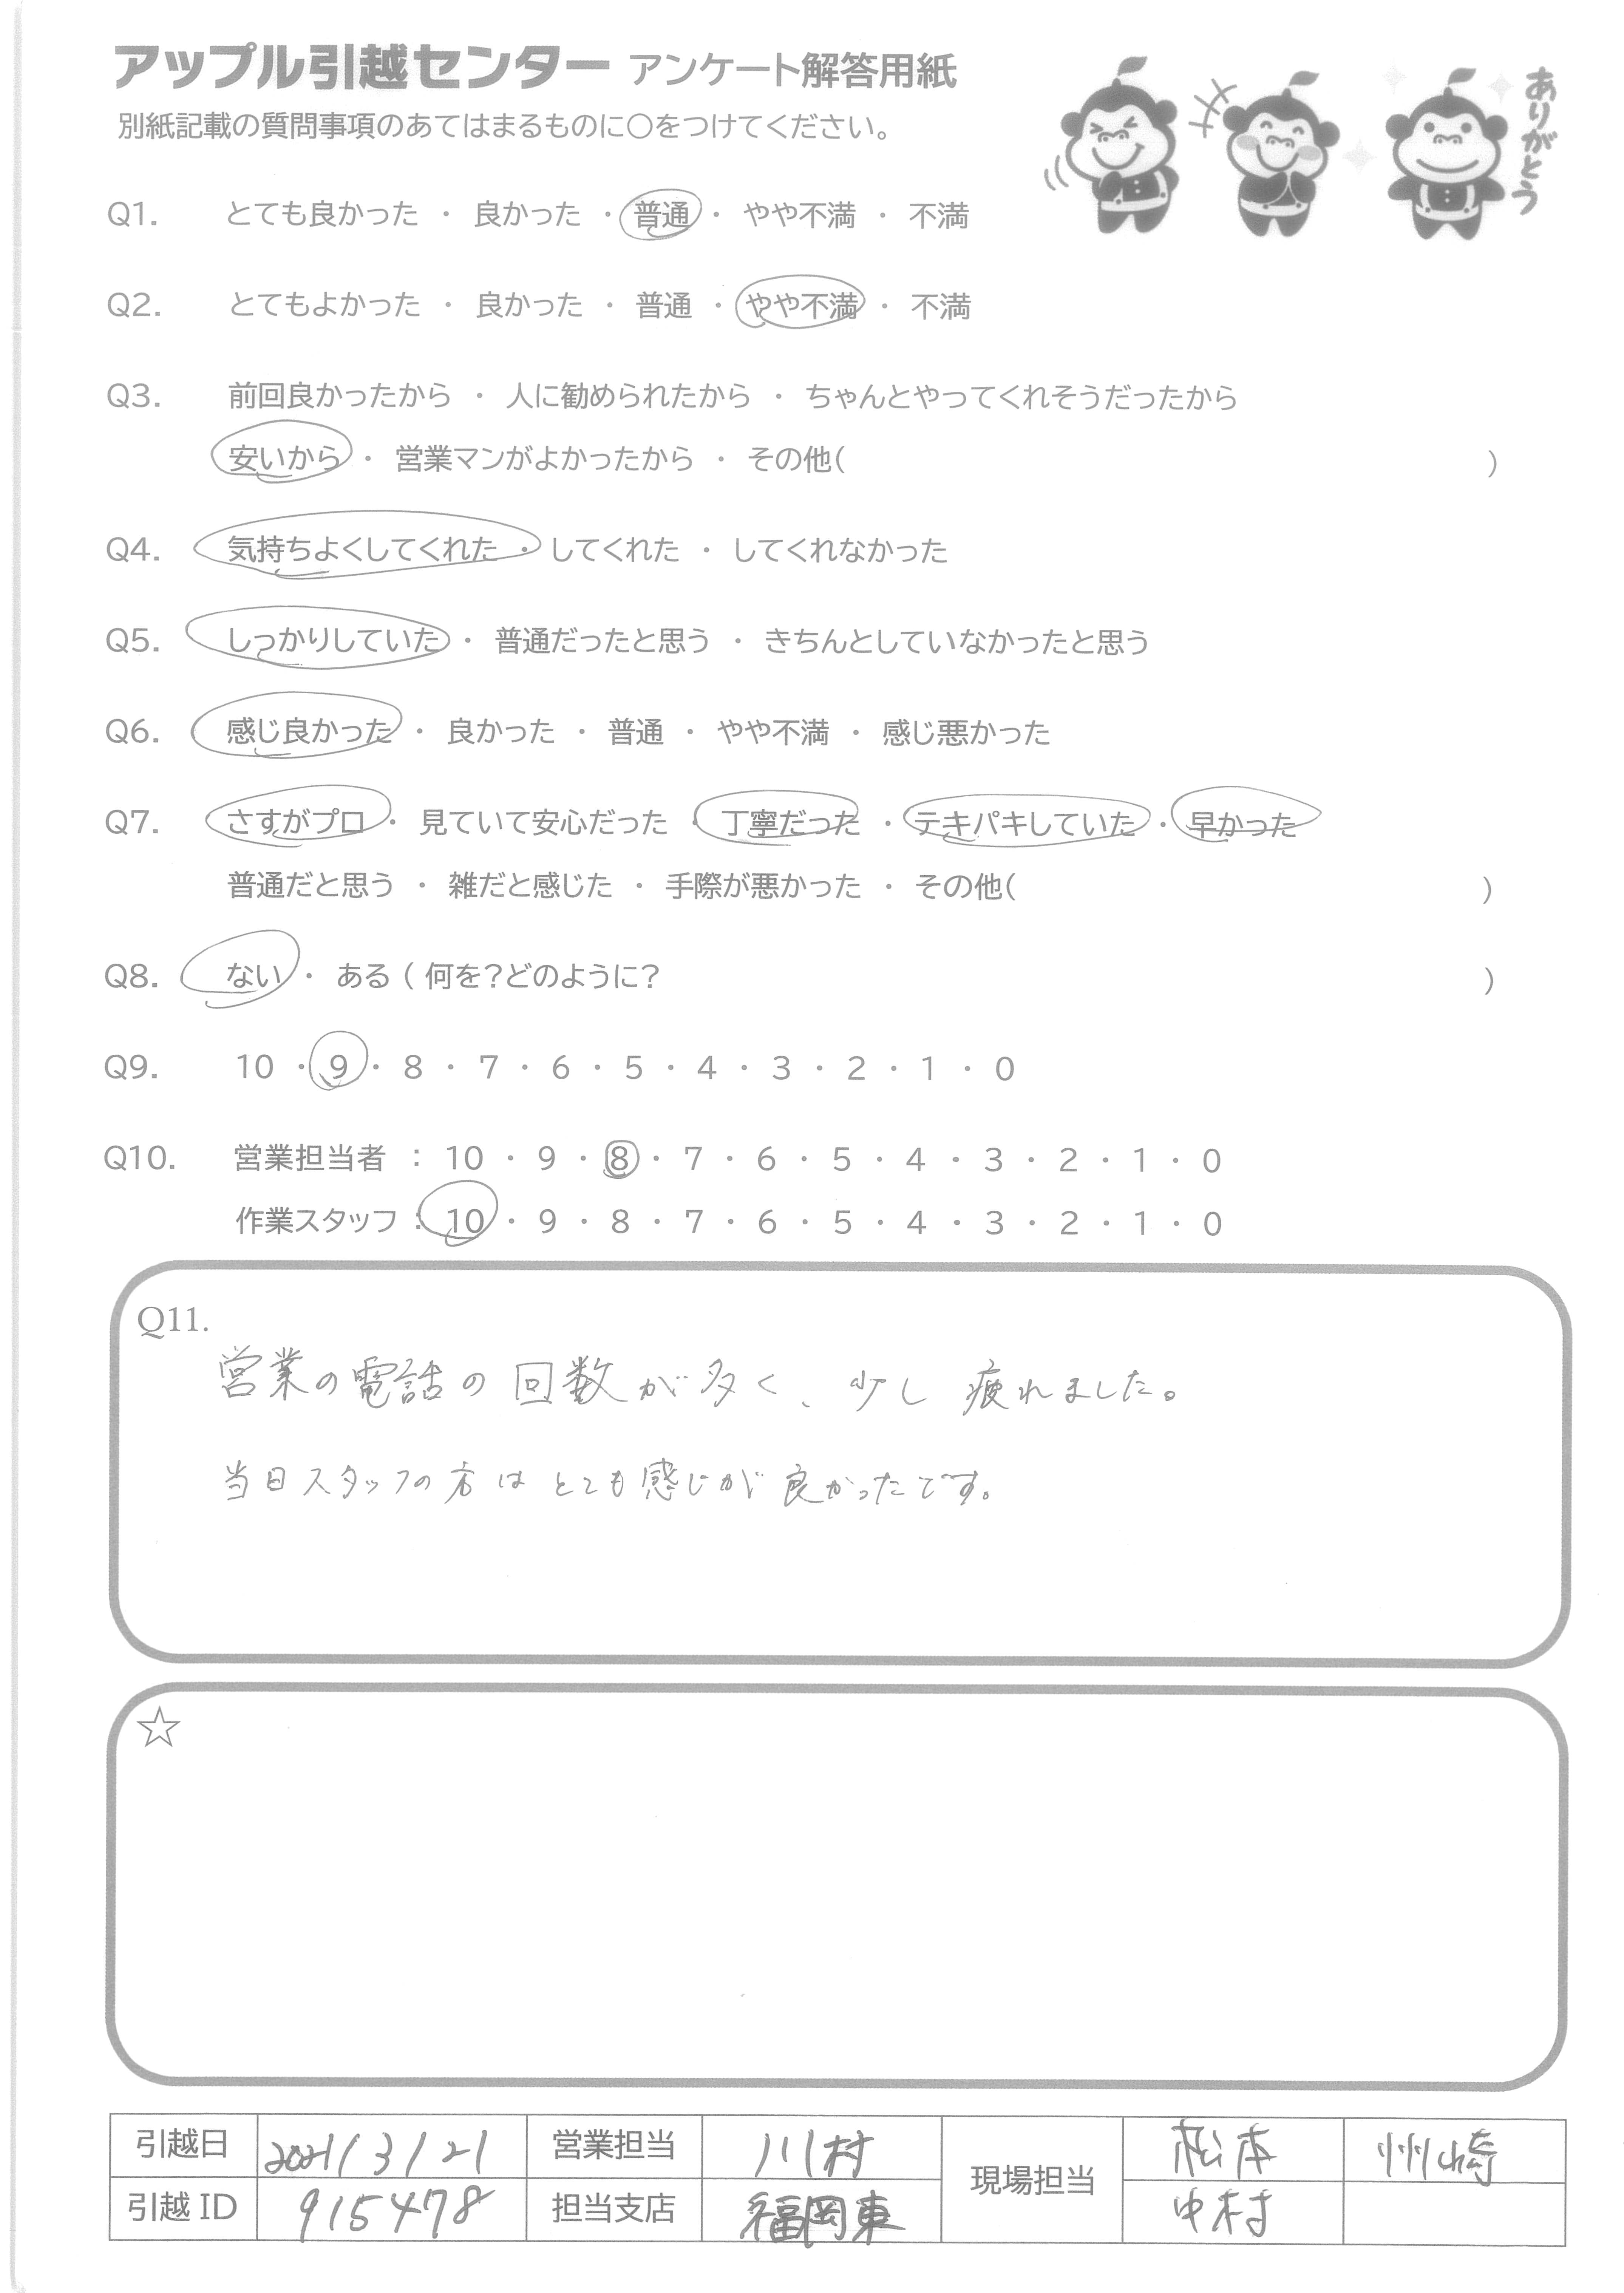 アップル引越センター アンケート解答用紙
ありがとう
別紙記載の質問事項のあてはまるものに○をつけてください。
Q1. とても良かった ・ 良かった ・ 普通 ・ やや不満 ・ 不満
Q2. とてもよかった ・ 良かった ・ 普通 ・ やや不満 ・ 不満
Q3. 前回良かったから ・ 人に勧められたから ・ ちゃんとやってくれそうだったから
安いから ・ 営業マンがよかったから ・ その他( )
Q4. 気持ちよくしてくれた ・ してくれた ・ してくれなかった
Q5. しっかりしていた ・ 普通だったと思う ・ きちんとしていなかったと思う
Q6. 感じ良かった ・ 良かった ・ 普通 ・ やや不満 ・ 感じ悪かった
Q7. さすがプロ ・ 見ていて安心だった ・ 丁寧だった ・ テキパキしていた ・ 早かった
普通だと思う ・ 雑だと感じた ・ 手際が悪かった ・ その他( )
Q8. ない ・ ある ( 何を?どのように? )
Q9. 10 ・ 9 ・ 8 ・ 7 ・ 6 ・ 5 ・ 4 ・ 3 ・ 2 ・ 1 ・ 0
Q10. 営業担当者 : 10 ・ 9 ・ 8 ・ 7 ・ 6 ・ 5 ・ 4 ・ 3 ・ 2 ・ 1 ・ 0
作業スタッフ : 10 ・ 9 ・ 8 ・ 7 ・ 6 ・ 5 ・ 4 ・ 3 ・ 2 ・ 1 ・ 0
Q11.
営業の電話の回数が多く、少し疲れました。
当日スタッフの方はとても感じが良かったです。
☆
引越日 2021/3/21 営業担当 川村 現場担当 松本 州崎
引越ID 915478 担当支店 福岡東 中村